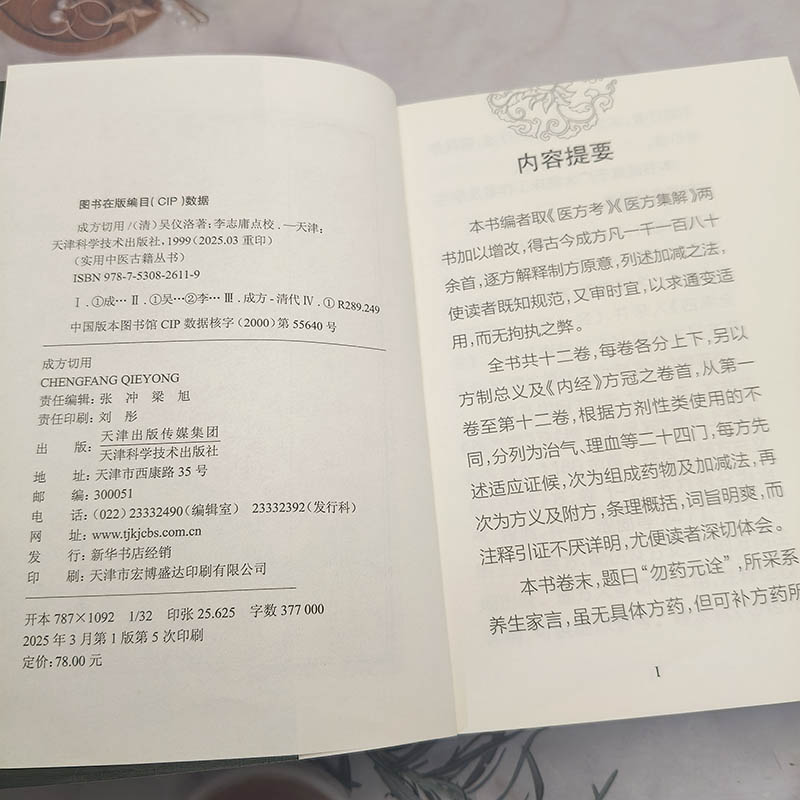 图书在版编目(CIP)数据
成方切用/(清)吴仪洛著;李志庸点校.—天津:
天津科学技术出版社,1999(2025.03 重印)
(实用中医古籍丛书)
ISBN 978-7-5308-2611-9
Ⅰ.①成… Ⅱ.①吴…②李… Ⅲ.成方-清代 Ⅳ.① R289.249
中国版本图书馆 CIP 数据核字(2000)第 55640 号
成方切用
CHENGFANG QIEYONG
责任编辑:张 冲 梁 旭
责任印刷:刘 彤
出 版:天津出版传媒集团
天津科学技术出版社
地 址:天津市西康路 35 号
邮 编:300051
电 话:(022)23332490(编辑室) 23332392(发行科)
网 址:www.tjkjcbs.com.cn
发 行:新华书店经销
印 刷:天津市宏博盛达印刷有限公司
开本 787×1092 1/32 印张 25.625 字数 377 000
2025 年 3 月第 1 版第 5 次印刷
定价:78.00 元
内容提要
本书编者取《医方考》《医方集解》两
书加以增改,得古今成方凡一千一百八十
余首,逐方解释制方原意,列述加减之法,
使读者既知规范,又审时宜,以求通变适
用,而无拘执之弊。
全书共十二卷,每卷各分上下,另以
方制总义及《内经》方冠之卷首,从第一
卷至第十二卷,根据方剂性类使用的不
同,分列为治气、理血等二十四门,每方先
述适应证候,次为组成药物及加减法,再
次为方义及附方,条理概括,词旨明爽,而
注释引证不厌详明,尤便读者深切体会。
本书卷末,题曰“勿药元诠”,所采系
养生家言,虽无具体方药,但可补方药所
I